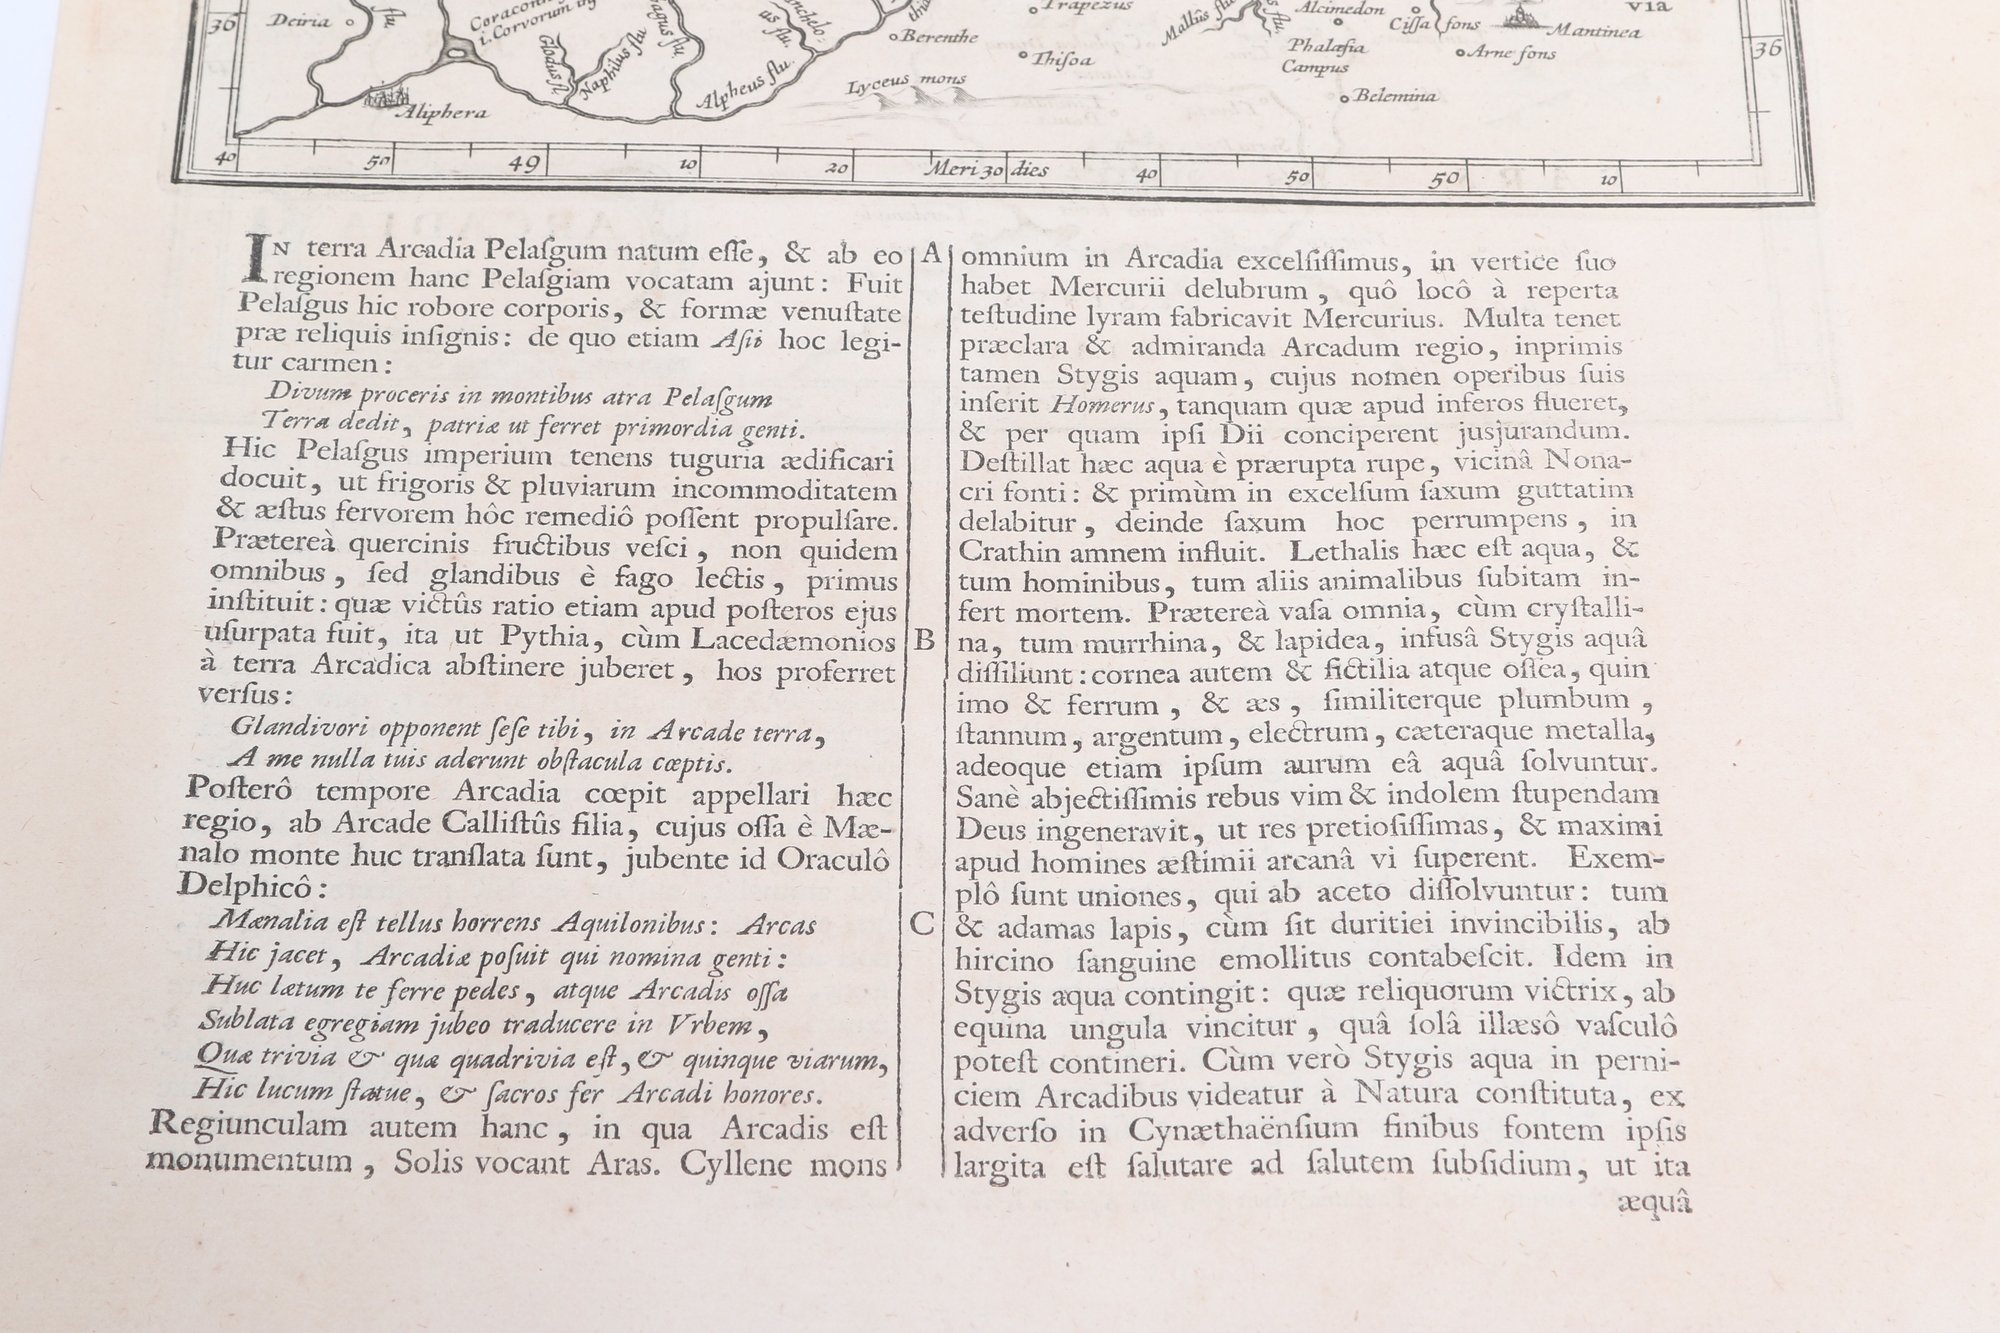 36
Deiria
flu.
i. Corvorum
Glodus fl.
Naphilus flu
flu.
us flu.
Alpheus flu.
Aliphera
Berenthe
Trapezus
Thiſoa
Lyceus mons
Mallûs flu.
flu.
Alcimedon
Ciſſa fons
Phalæſia
Campus
Mantinea
Arne fons
Belemina
VIA
36
40 50 49 10 20 Meri 30 dies 40 50 50 10
IN terra Arcadia Pelaſgum natum eſſe, & ab eo
regionem hanc Pelaſgiam vocatam ajunt: Fuit
Pelaſgus hic robore corporis, & formæ venuſtate
præ reliquis inſignis: de quo etiam Aſii hoc legi-
tur carmen:
Divum proceris in montibus atra Pelaſgum
Terra dedit, patriæ ut ferret primordia genti.
Hic Pelaſgus imperium tenens tuguria ædificari
docuit, ut frigoris & pluviarum incommoditatem
& æſtus fervorem hôc remediô poſſent propulſare.
Prætereà quercinis fructibus veſci, non quidem
omnibus, ſed glandibus è fago lectis, primus
inſtituit: quæ victûs ratio etiam apud poſteros ejus
uſurpata fuit, ita ut Pythia, cùm Lacedæmonios
à terra Arcadica abſtinere juberet, hos proferret
verſus:
Glandivori opponent ſeſe tibi, in Arcade terra,
A me nulla tuis aderunt obſtacula cœptis.
Poſterô tempore Arcadia cœpit appellari hæc
regio, ab Arcade Calliſtûs filia, cujus oſſa è Mæ-
nalo monte huc tranſlata ſunt, jubente id Oraculô
Delphicô:
Mænalia eſt tellus horrens Aquilonibus: Arcas
Hic jacet, Arcadiæ poſuit qui nomina genti:
Huc lætum te ferre pedes, atque Arcadis oſſa
Sublata egregiam jubeo traducere in Vrbem,
Quæ trivia & quæ quadrivia eſt, & quinque viarum,
Hic lucum ſtatue, & ſacros fer Arcadi honores.
Regiunculam autem hanc, in qua Arcadis eſt
monumentum, Solis vocant Aras. Cyllene mons
A
B
C
omnium in Arcadia excelſiſſimus, in vertice ſuo
habet Mercurii delubrum, quô locô à reperta
teſtudine lyram fabricavit Mercurius. Multa tenet
præclara & admiranda Arcadum regio, inprimis
tamen Stygis aquam, cujus nomen operibus ſuis
inſerit Homerus, tanquam quæ apud inferos flueret,
& per quam ipſi Dii conciperent jusjurandum.
Deſtillat hæc aqua è prærupta rupe, vicinâ Nona-
cri fonti: & primùm in excelſum ſaxum guttatim
delabitur, deinde ſaxum hoc perrumpens, in
Crathin amnem influit. Lethalis hæc eſt aqua, &
tum hominibus, tum aliis animalibus ſubitam in-
fert mortem. Prætereà vaſa omnia, cùm cryſtalli-
na, tum murrhina, & lapidea, infusâ Stygis aquâ
diſſiliunt: cornea autem & fictilia atque oſſea, quin
imo & ferrum, & æs, ſimiliterque plumbum,
ſtannum, argentum, electrum, cæteraque metalla,
adeoque etiam ipſum aurum eâ aquâ ſolvuntur.
Sanè abjectiſſimis rebus vim & indolem ſtupendam
Deus ingeneravit, ut res pretioſiſſimas, & maximi
apud homines æſtimii arcanâ vi ſuperent. Exem-
plô ſunt uniones, qui ab aceto diſſolvuntur: tum
& adamas lapis, cùm ſit duritiei invincibilis, ab
hircino ſanguine emollitus contabeſcit. Idem in
Stygis aqua contingit: quæ reliquorum victrix, ab
equina ungula vincitur, quâ ſolâ illæsô vaſculô
poteſt contineri. Cùm verò Stygis aqua in perni-
ciem Arcadibus videatur à Natura conſtituta, ex
adverſo in Cynæthaënſium finibus fontem ipſis
largita eſt ſalutare ad ſalutem ſubſidium, ut ita
æquâ